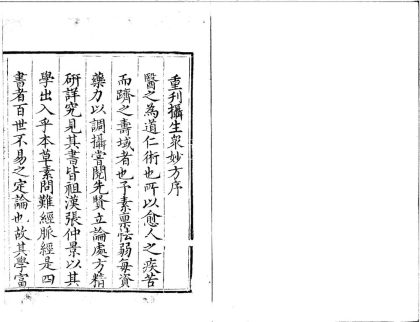 重刊攝生衆妙方序
醫之為道仁術也所以愈人之疾苦
而躋之壽域者也予素稟怯弱每資
藥力以調攝嘗閱先賢立論處方精
研詳究見其書皆祖漢張仲景以其
學出入乎本草素問難經脈經是四
書者百世不易之定論也故其學富